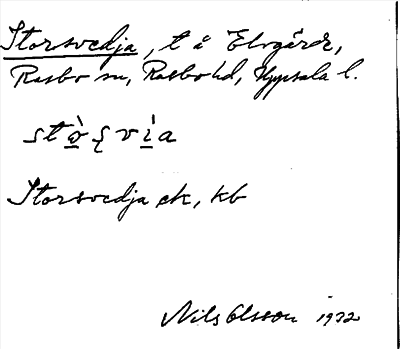 Storsvedja, t å Elvgärde,
Rasbo sn, Rasbo hd, Uppsala l.
stò̱ʂvì̱a
Storsvedja ek, kb
Nils Olsson 1932